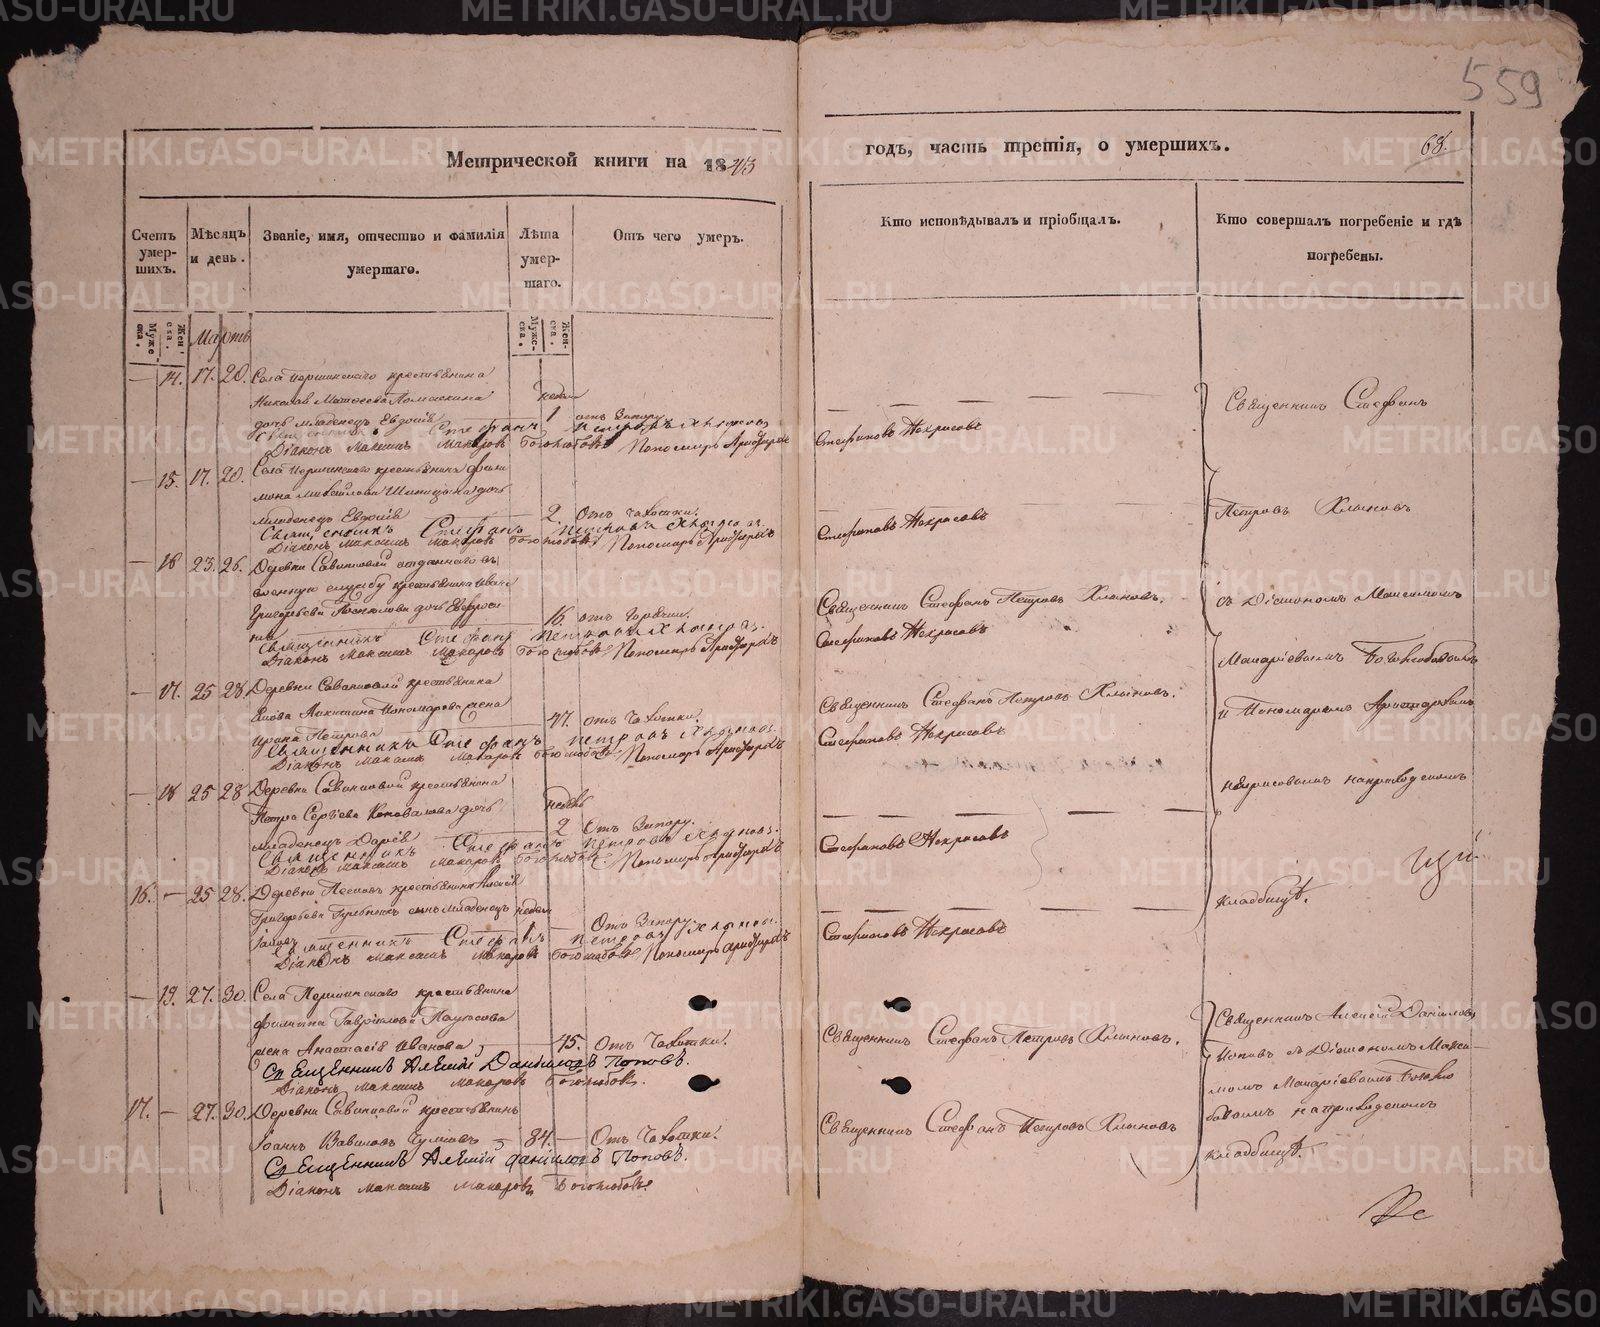 559
Метрической книги на 1843
годъ, часть третія, о умершихъ.
68.
Счетъ умер-шихъ.
Мѣсяцъ и день.
Званіе, имя, отчество и фамилія умершаго.
Лѣта умер-шаго.
Отъ чего умеръ.
Кто исповѣдывалъ и пріобщалъ.
Кто совершалъ погребеніе и гдѣ погребены.
Муже-ска.
Жен-ска.
Мартъ
Муже-ска.
Жен-ска.
— 14. 17. 20. Села крестьянина
Николая Матѳеева недѣли
дочь младенецъ Евдокія 1 отъ Запору
Священникъ Стефанъ Петровъ Хлыновъ
Діаконъ Максимъ Макаровъ Боголюбовъ Пономарь
Стефановъ Некрасовъ
— 15. 17. 20. Села крестьянина Фили
мона Михайлова дочь
младенецъ Евдокія 2. Отъ Чахотки.
Священникъ Стефанъ Петровъ Хлыновъ
Діаконъ Максимъ Макаровъ Боголюбовъ Пономарь
Стефановъ Некрасовъ
— 16 23. 26. Деревни отданнаго въ
военную службу крестьянина Ивана
Григорьева дочь Евфроси
нія 16. отъ Горячки.
Священникъ Стефанъ Петровъ Хлыновъ.
Діаконъ Максимъ Макаровъ Боголюбовъ Пономарь
Священникъ Стефанъ Петровъ Хлыновъ.
Стефановъ Некрасовъ
— 17. 25 28 Деревни крестьянина
Никитина Пономарева жена
Ирина Петрова 47. отъ Чахотки.
Священникъ Стефанъ Петровъ Хлыновъ.
Діаконъ Максимъ Макаровъ Боголюбовъ Пономарь
Священникъ Стефанъ Петровъ Хлыновъ.
Стефановъ Некрасовъ
— 18 25 28 Деревни крестьянина
Петра Сергѣева Коновалова дочь недѣль
младенецъ Дарія 2 Отъ Запору.
Священникъ Стефанъ Петровъ Хлыновъ.
Діаконъ Максимъ Макаровъ Боголюбовъ. Пономарь
Стефановъ Некрасовъ
16. — 25 28. Деревни крестьянина Алексія
Григорьева сынъ младенецъ недѣли
1 — Отъ Запору.
Священникъ Стефанъ Петровъ Хлыновъ.
Діаконъ Максимъ Макаровъ Боголюбовъ Пономарь
Стефановъ Некрасовъ
Священникъ Стефанъ
Петровъ Хлыновъ
съ Діакономъ Максимомъ
Макаріевымъ Боголюбовымъ
и Пономаремъ
Некрасовымъ на приходскомъ
кладбищѣ.
— 19. 27. 30. Села крестьянина
Филиппа Гавріилова
жена Анастасія Иванова 45. Отъ Чахотки.
Священникъ Алексій Даниловъ Поповъ.
Діаконъ Максимъ Макаровъ Боголюбовъ.
Священникъ Стефанъ Петровъ Хлыновъ.
17. — 27. 30. Деревни крестьянинъ
Іоаннъ Вавиловъ — 84. — Отъ Чахотки.
Священникъ Алексій Даніиловъ Поповъ.
Діаконъ Максимъ Макаровъ Боголюбовъ.
Священникъ Стефанъ Петровъ Хлыновъ
Священникъ Алексій Даніиловъ
Поповъ съ Діакономъ Макси
момъ Макаріевымъ Боголю
бовымъ на приходскомъ
кладбищѣ.
METRIKI.GASO-URAL.RU